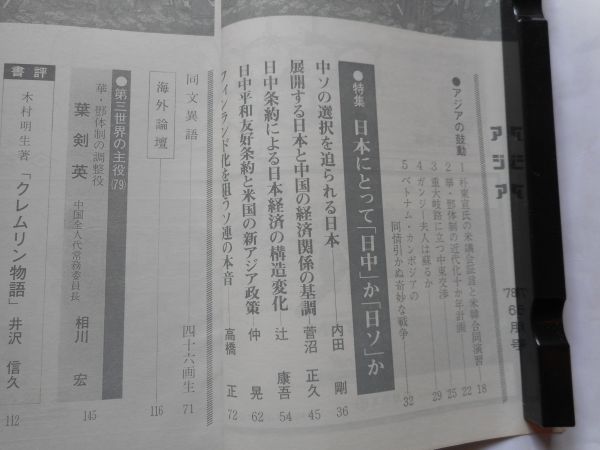 アジア
●アジアの鼓動
1 朴東宣氏の米議会証言と米韓合同演習 18
2 華・鄧体制の近代化十か年計画 22
3 重大岐路に立つ中東交渉 25
4 ガンジー夫人は蘇るか 29
5 ベトナム・カンボジアの
同情引かぬ奇妙な戦争 32
●特集 日本にとって「日中」か「日ソ」か
中ソの選択を迫られる日本 内田 剛 36
展開する日本と中国の経済関係の基調 菅沼 正久 45
日中条約による日本経済の構造変化 辻 康吾 54
日中平和友好条約と米国の新アジア政策 仲 晃 62
フィンランド化を狙うソ連の本音 高橋 正 72
同文異語 四十六画生 71
海外論壇 116
●第三世界の主役(79)
華・鄧体制の調整役
葉剣英 中国全人代常務委員長 相川 宏 145
書評
木村明生著 「クレムリン物語」 井沢 信久 112